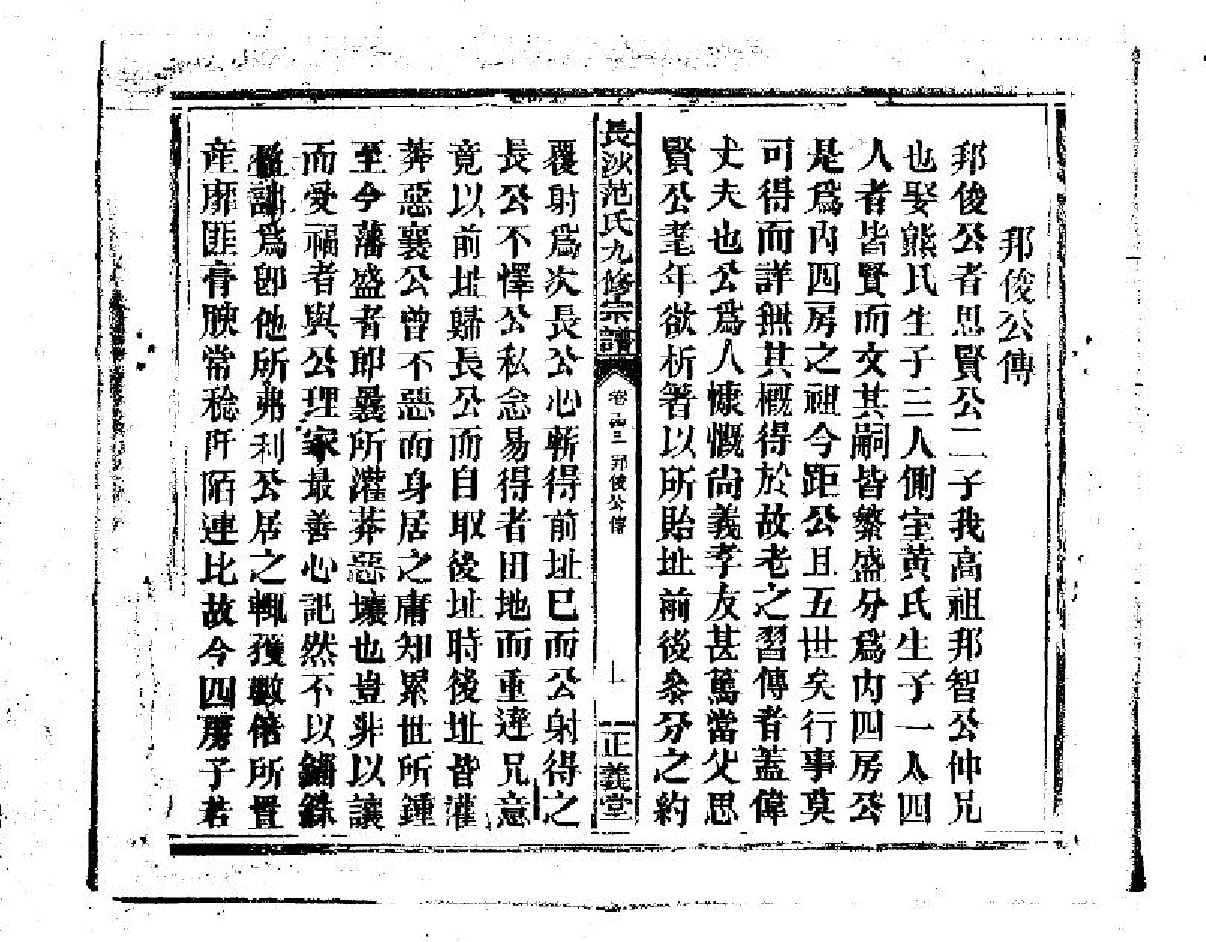 邦俊公傳
邦俊公者思賢公二子我高祖邦智公仲兄
也娶熊氏生子三人側室黄氏生子一人四
人者皆賢而文其嗣皆繁盛分爲内四房公
是爲内四房之祖今距公且五世矣行事莫
可得而詳無其概得於故老之習傳者蓋偉
丈夫也公爲人慷慨尙義孝友甚篤當父思
賢公耄年欲析箸以所貽址前後叅分之約
長沙范氏九修宗譜
卷
三
邦俊公傳
上
正義堂
覆射爲次長公心蘄得前址已而公射得之
長公不懌公私念易得者田地而重違兄意
竟以前址歸長公而自取後址時後址皆灌
莽惡襄公曾不惡而身居之庸知累世所鍾
至今藩盛者即曩所灌莽惡壤也豈非以讓
而受福者與公理家最善心詑然不以錙銖
詘爲卽他所弗利公居之輒獲數倍所置
産靡匪膏腴常稔阡陌連比故今四房子若